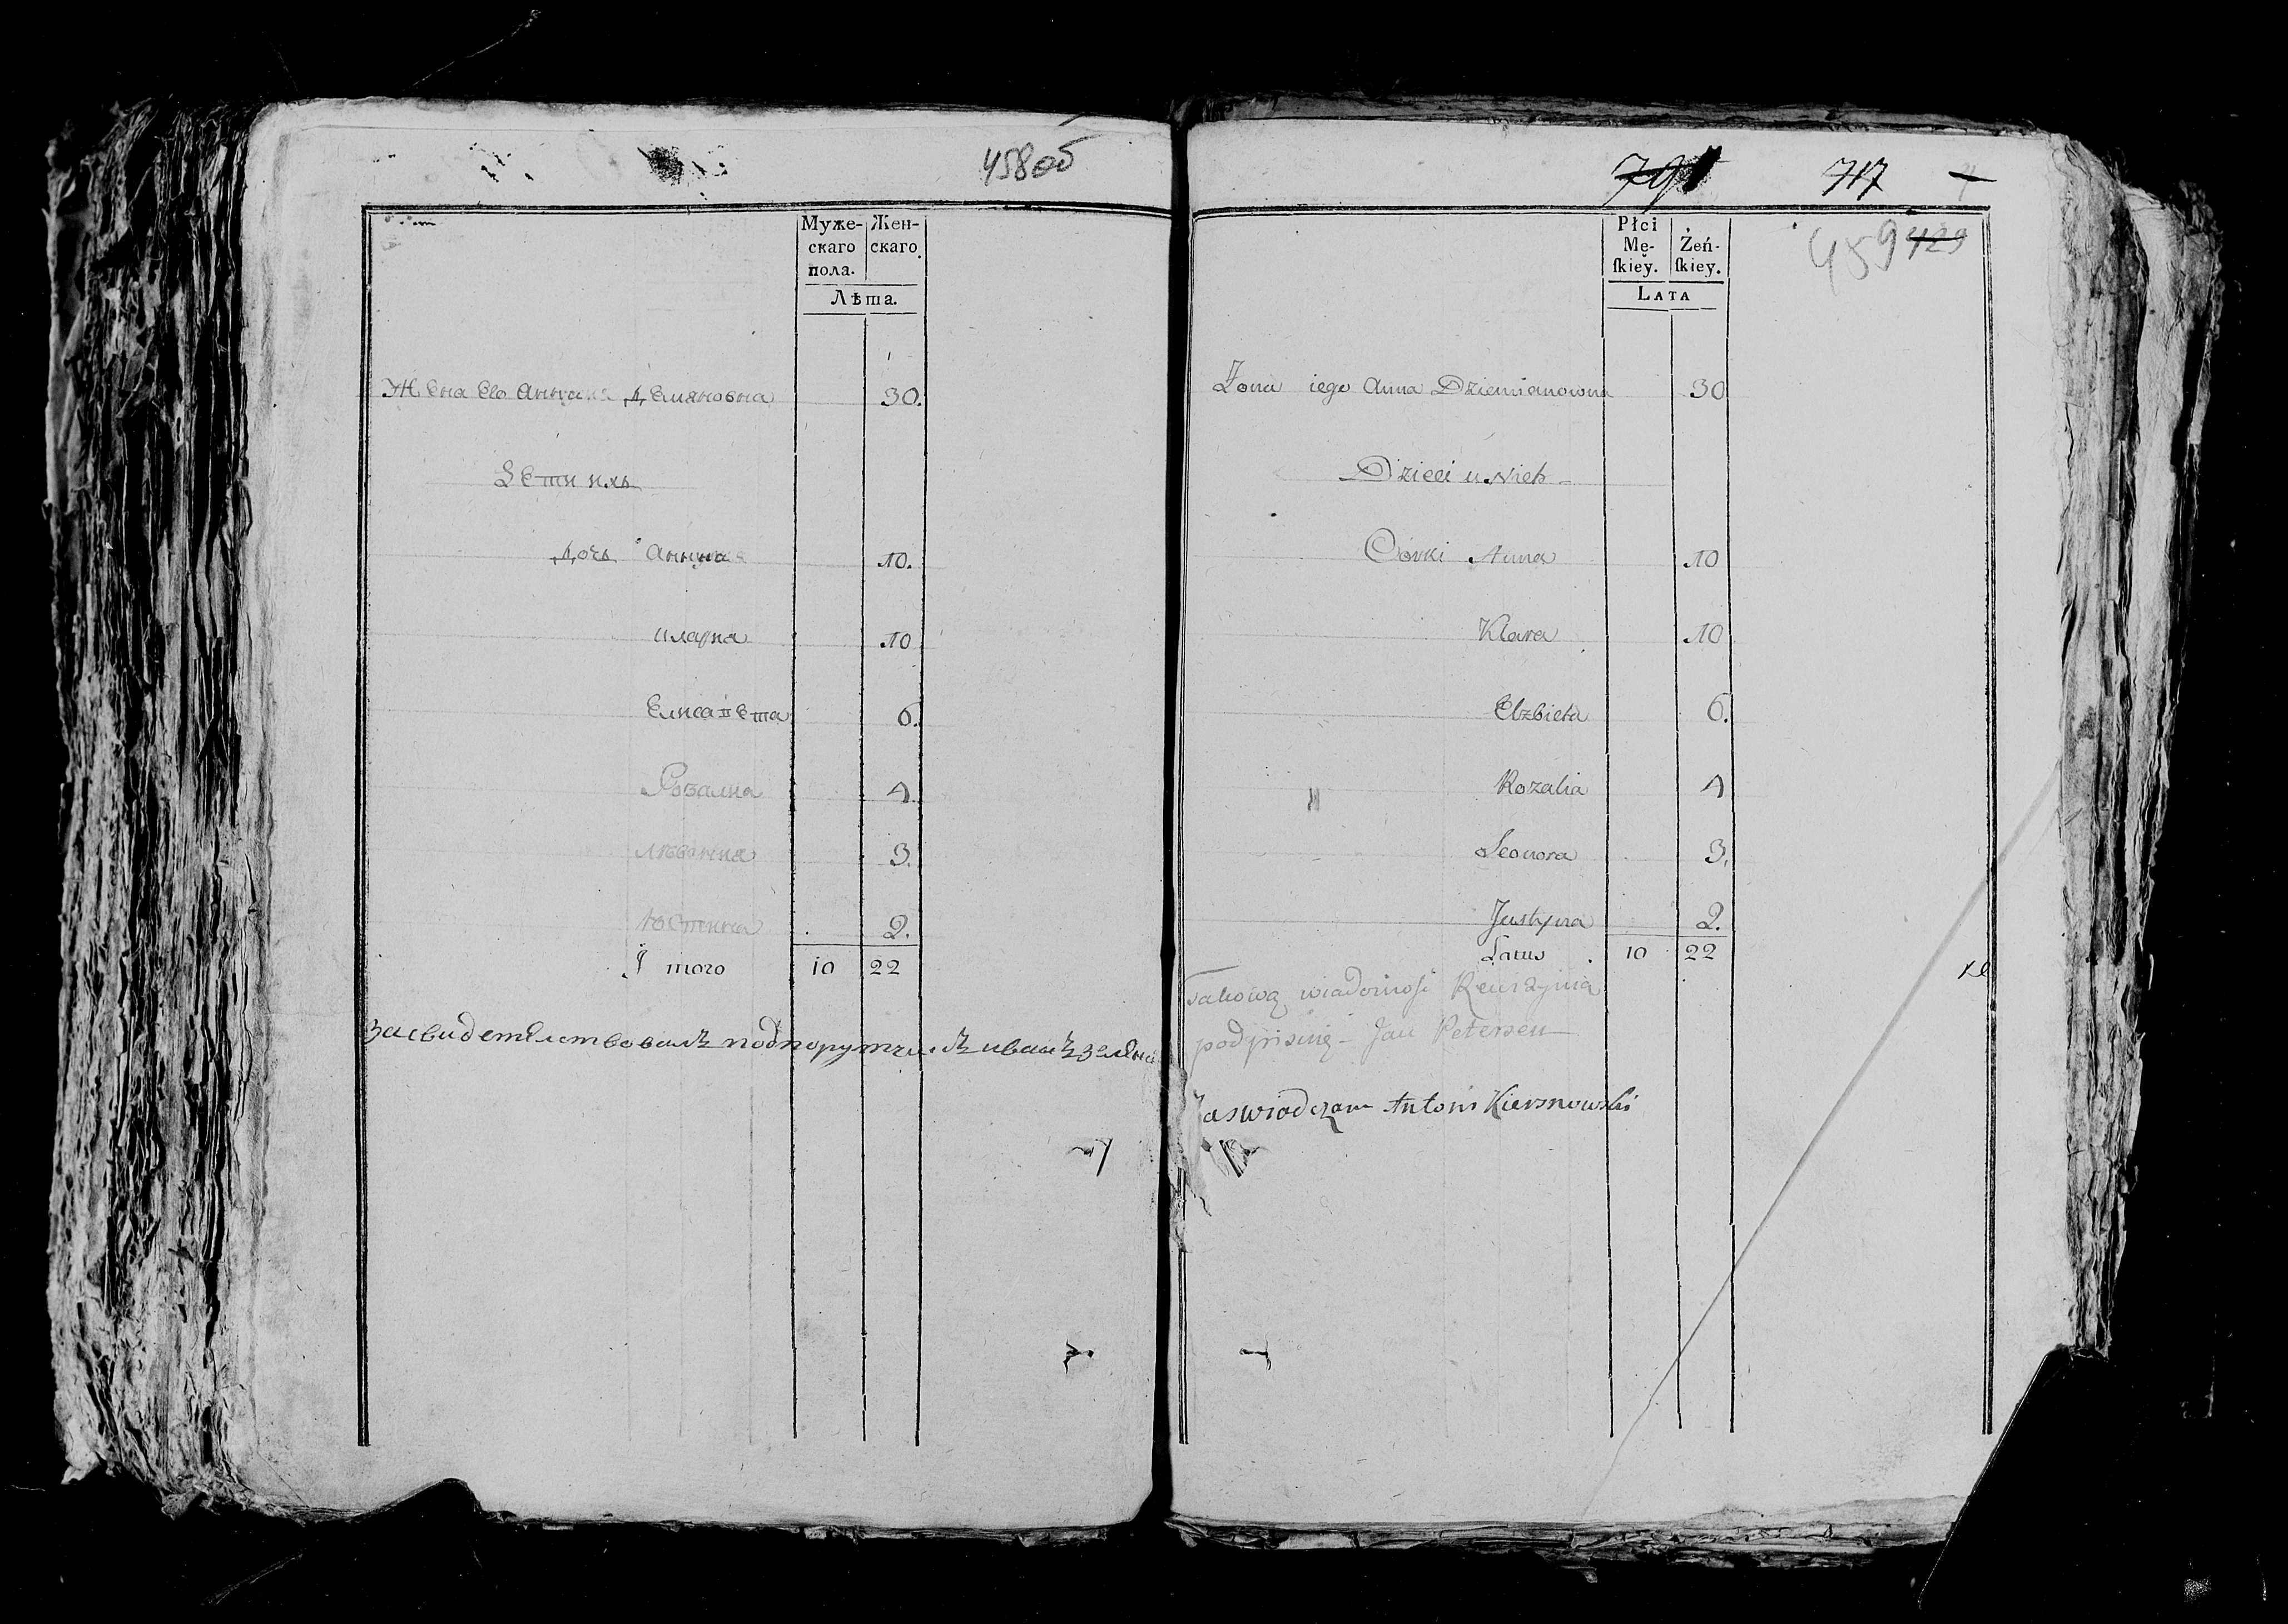 458об
Муже-
скаго
пола.
Жен-
скаго.
Лѣта.
Жена Его Анна Демяновна 30.
Дети ихъ
Дочь Анна 10.
Клара 10
Елисавета 6.
Розалиа 4.
3.
Юстина 2.
Итого 10 22
засвидетелствовалъ подпорутчикъ иванъ
791 717
459 429
Płci
Mę-
ſkiey.
Żeń-
ſkiey.
LATA
Żona iego Anna Dziemianowna 30
Dzieci u Nich
Córki Anna 10
Klara 10
Elzbieta 6.
Rozalia 4
Leonora 3.
Justyna 2.
Latus 10 22
Takową wiadomość Rewizyina
podpisuię - Jan Petersen
Zaswiadczam Antoni Kiersnowski